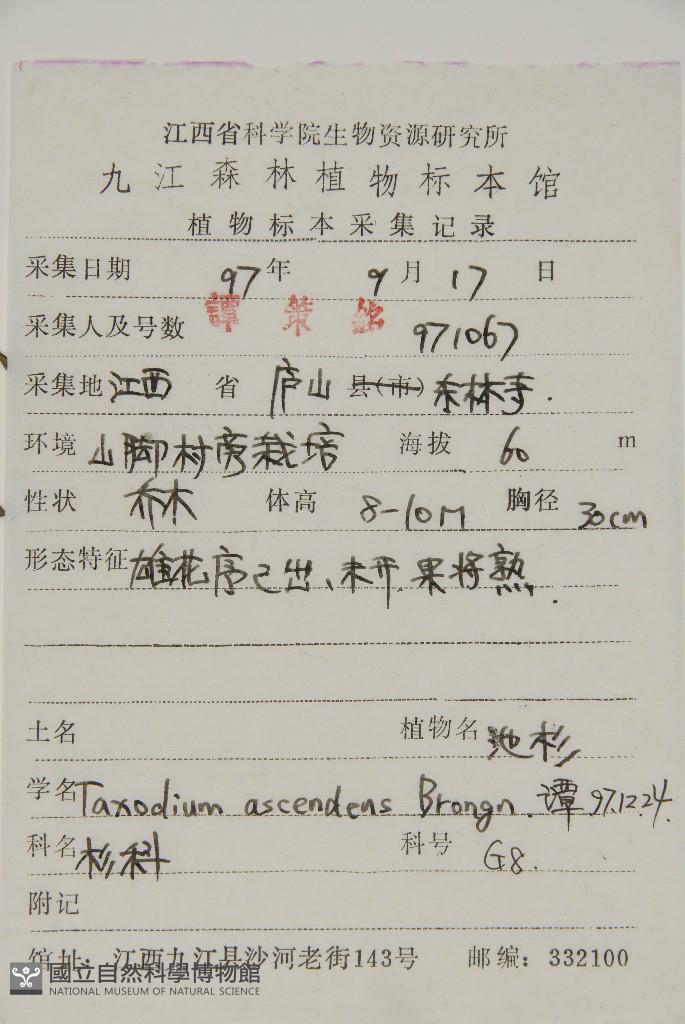 江西省科学院生物资源研究所
九江森林植物标本馆
植物标本采集记录
采集日期 97年 9月17日
譚策銘
采集人及号数 971067
采集地 江西 省 庐山 县(市) 东林寺.
环境 山脚村旁栽培 海拔 60 m
性状 乔木 体高 8-10M 胸径 30cm
形态特征 雄花序已出、未开.果将熟.
土名 植物名 池杉
学名 Taxodium ascendens Brongn. 谭 97.12.24.
科名 杉科 科号 G8.
附记
馆址：江西九江县沙河老街143号 邮编：332100
國立自然科學博物館
NATIONAL MUSEUM OF NATURAL SCIENCE